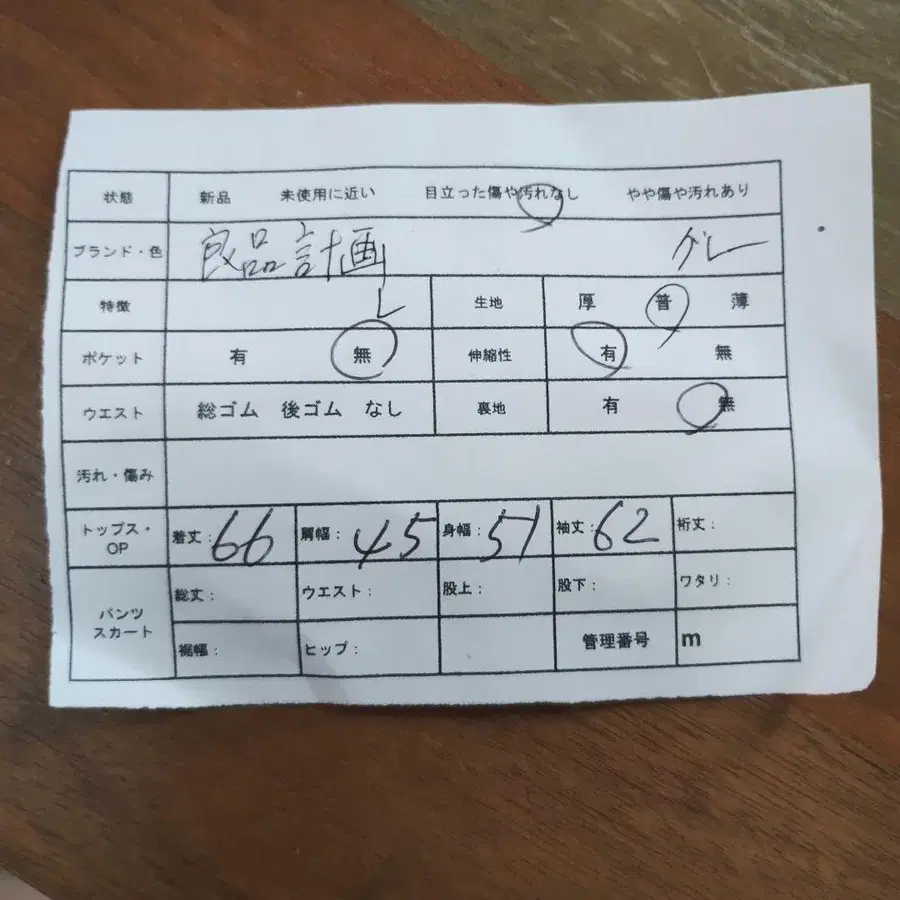 状態 新品 未使用に近い 目立った傷や汚れなし やや傷や汚れあり
ブランド・色 良品計画 グレー
特徴 L 生地 厚 普 薄
ポケット 有 無 伸縮性 有 無
ウエスト 総ゴム 後ゴム なし 裏地 有 無
汚れ・傷み
トップス・OP 着丈:66 肩幅:45 身幅:51 袖丈:62 裄丈:
パンツ スカート 総丈: ウエスト: 股上: 股下: ワタリ:
裾幅: ヒップ: 管理番号 m